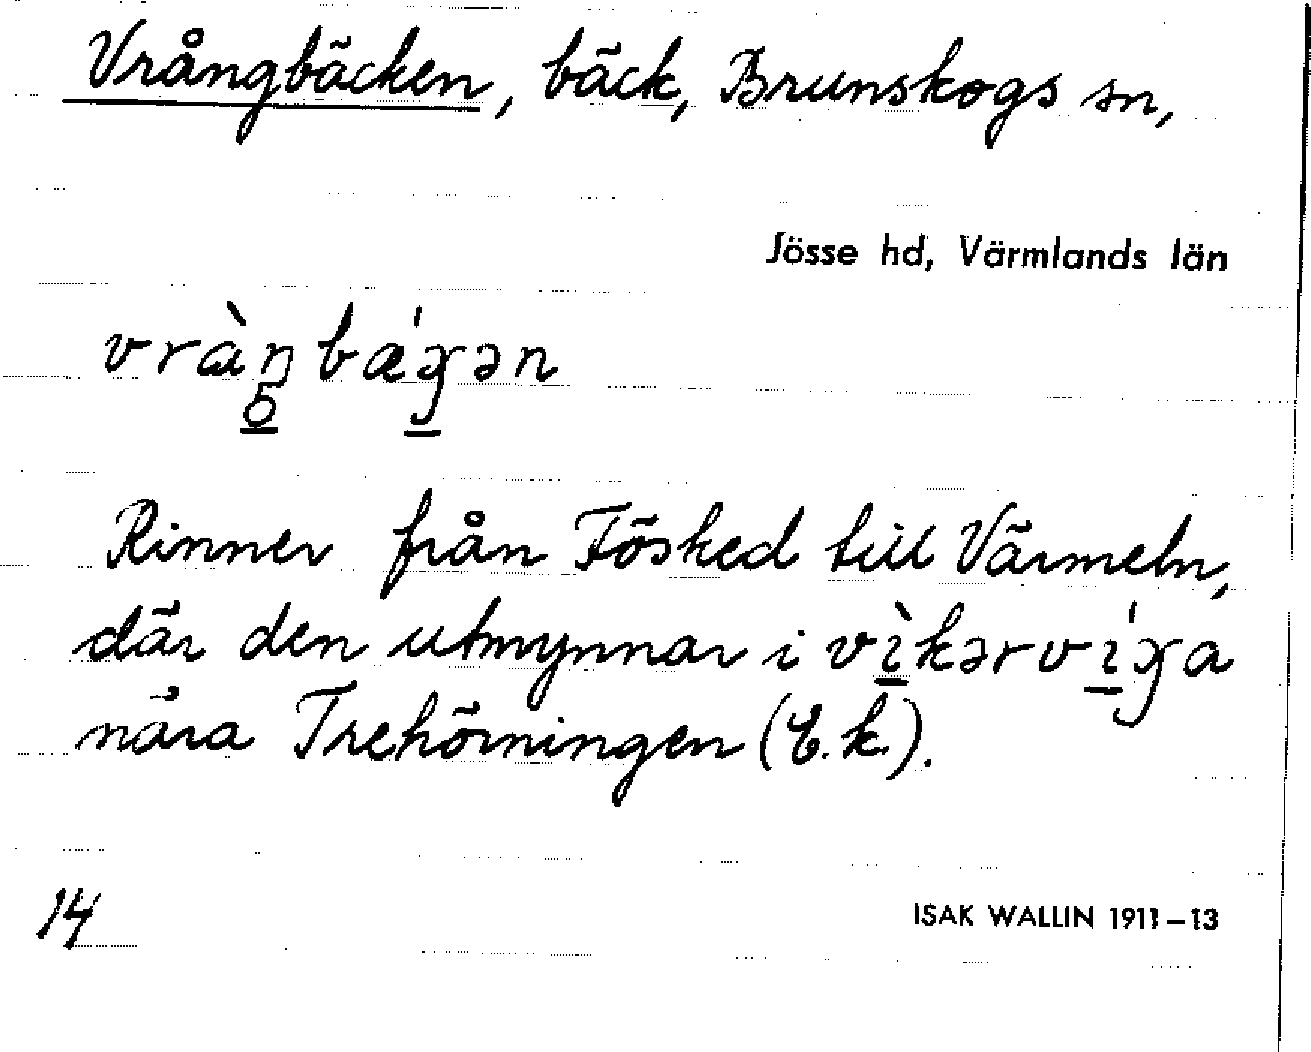 Vrångbäcken, bäck, Brunskogs sn,
Jösse hd, Värmlands län
Rinner från Fösked till Värmeln,
där den utmynnar i
nära Trehörningen (E.k.).
14
ISAK WALLIN 1911–13